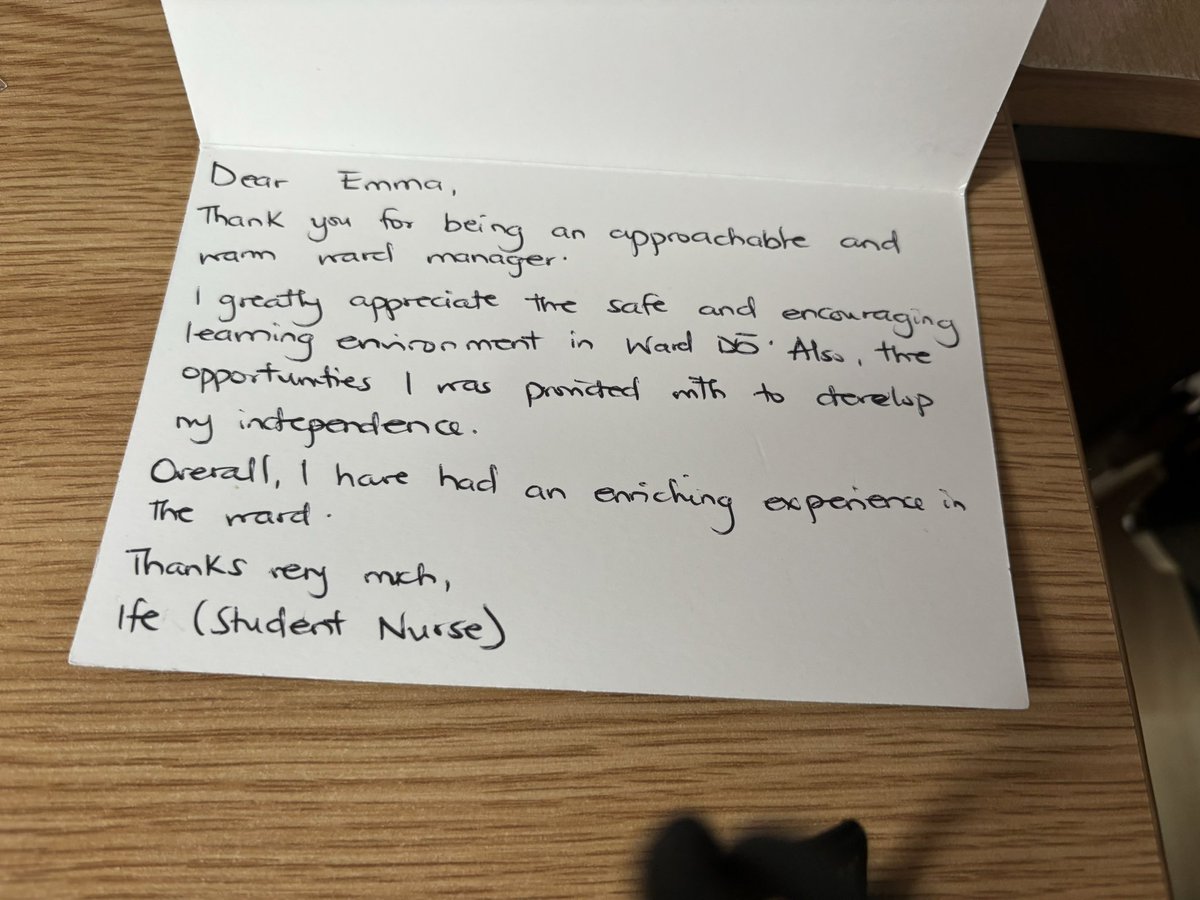 Dear Emma,
Thank you for being an approachable and
warm ward manager.
I greatly appreciate the safe and encouraging
learning environment in Ward D5. Also, the
opportunities I was provided with to develop
my independence.
Overall, I have had an enriching experience in
the ward.
Thanks very much,
Ife (Student Nurse)